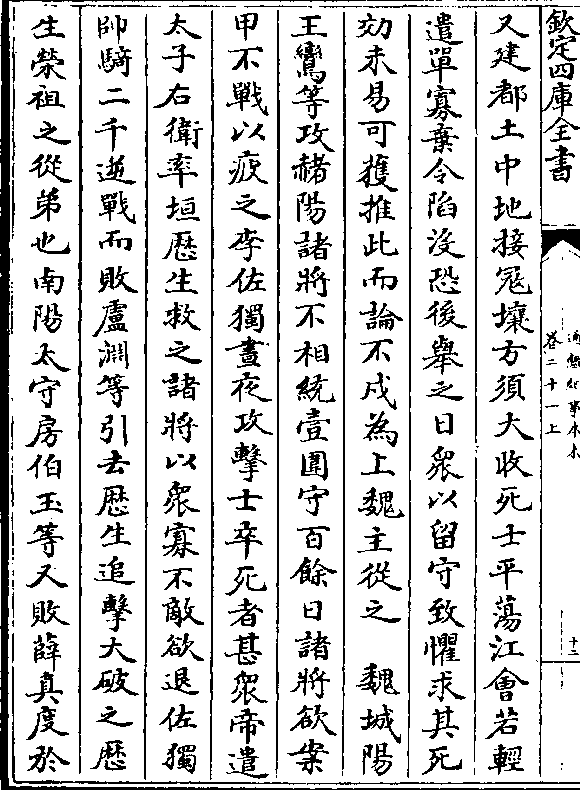 欽定四庫全書
通鑑紀事本末
卷二十一上
十二
又建都土中地接冦壤方須大收死士平蕩江會若輕
遣單寡棄令陷沒恐後舉之日衆以留守致懼求其死
効未易可獲推此而論不戍為上魏主從之　魏城陽
王鸞等攻赭陽諸將不相統壹圍守百餘日諸將欲案
甲不戰以疲之李佐獨晝夜攻擊士卒死者甚衆帝遣
太子右衛率垣歴生救之諸將以衆寡不敵欲退佐獨
帥騎二千逆戰而敗盧淵等引去歴生追擊大破之歴
生榮祖之從弟也南陽太守房伯玉等又敗薛真度於